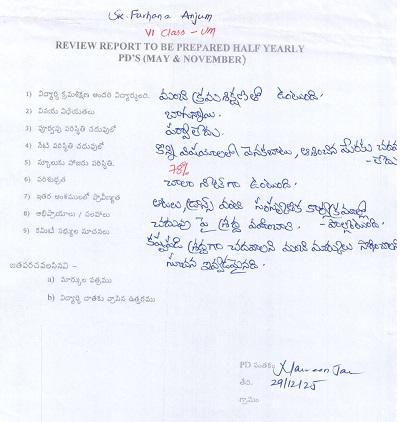 Sk. Farhana Anjum
VI Class - UM
REVIEW REPORT TO BE PREPARED HALF YEARLY
PD'S (MAY & NOVEMBER)
1) విద్యార్థి క్రమశిక్షణ అందరి విద్యార్థులది. మంచి క్రమశిక్షణతో ఉంటుంది.
2) వినయ విధేయతలు బాగున్నాయి.
3) పూర్వపు పరిస్థితి చదువులో పర్వాలేదు.
4) నేటి పరిస్థితి చదువులో కొన్ని విషయాలలో వెనకబాటు, ఆశించిన మేరకు చదవ
- లేదు
5) స్కూలుకు హాజరు పరిస్థితి. 78%
6) పరిశుభ్రత చాలా నీట్ గా ఉంటుంది.
7) ఇతర అంశములలో ప్రావీణ్యత ఆటలు, డ్రాన్స్ వంటి సాంస్కృతిక కార్యక్రమాల్లో
- పాల్గొంటుంది.
8) అభిప్రాయాలు / సలహాలు చదువు పై శ్రద్ధ వహించాలి
9) కమిటీ సభ్యుల సూచనలు కష్టపడి శ్రద్ధగా చదవాలని మంచి మార్కులు సాధించాలని
సూచన ఇవ్వడమైనది.
జతపరచవలసినవి –
a) మార్కుల పత్రము
b) విద్యార్థి దాతకు వ్రాసిన ఉత్తరము
PD సంతకం
తేది. 29/12/25
గ్రామం